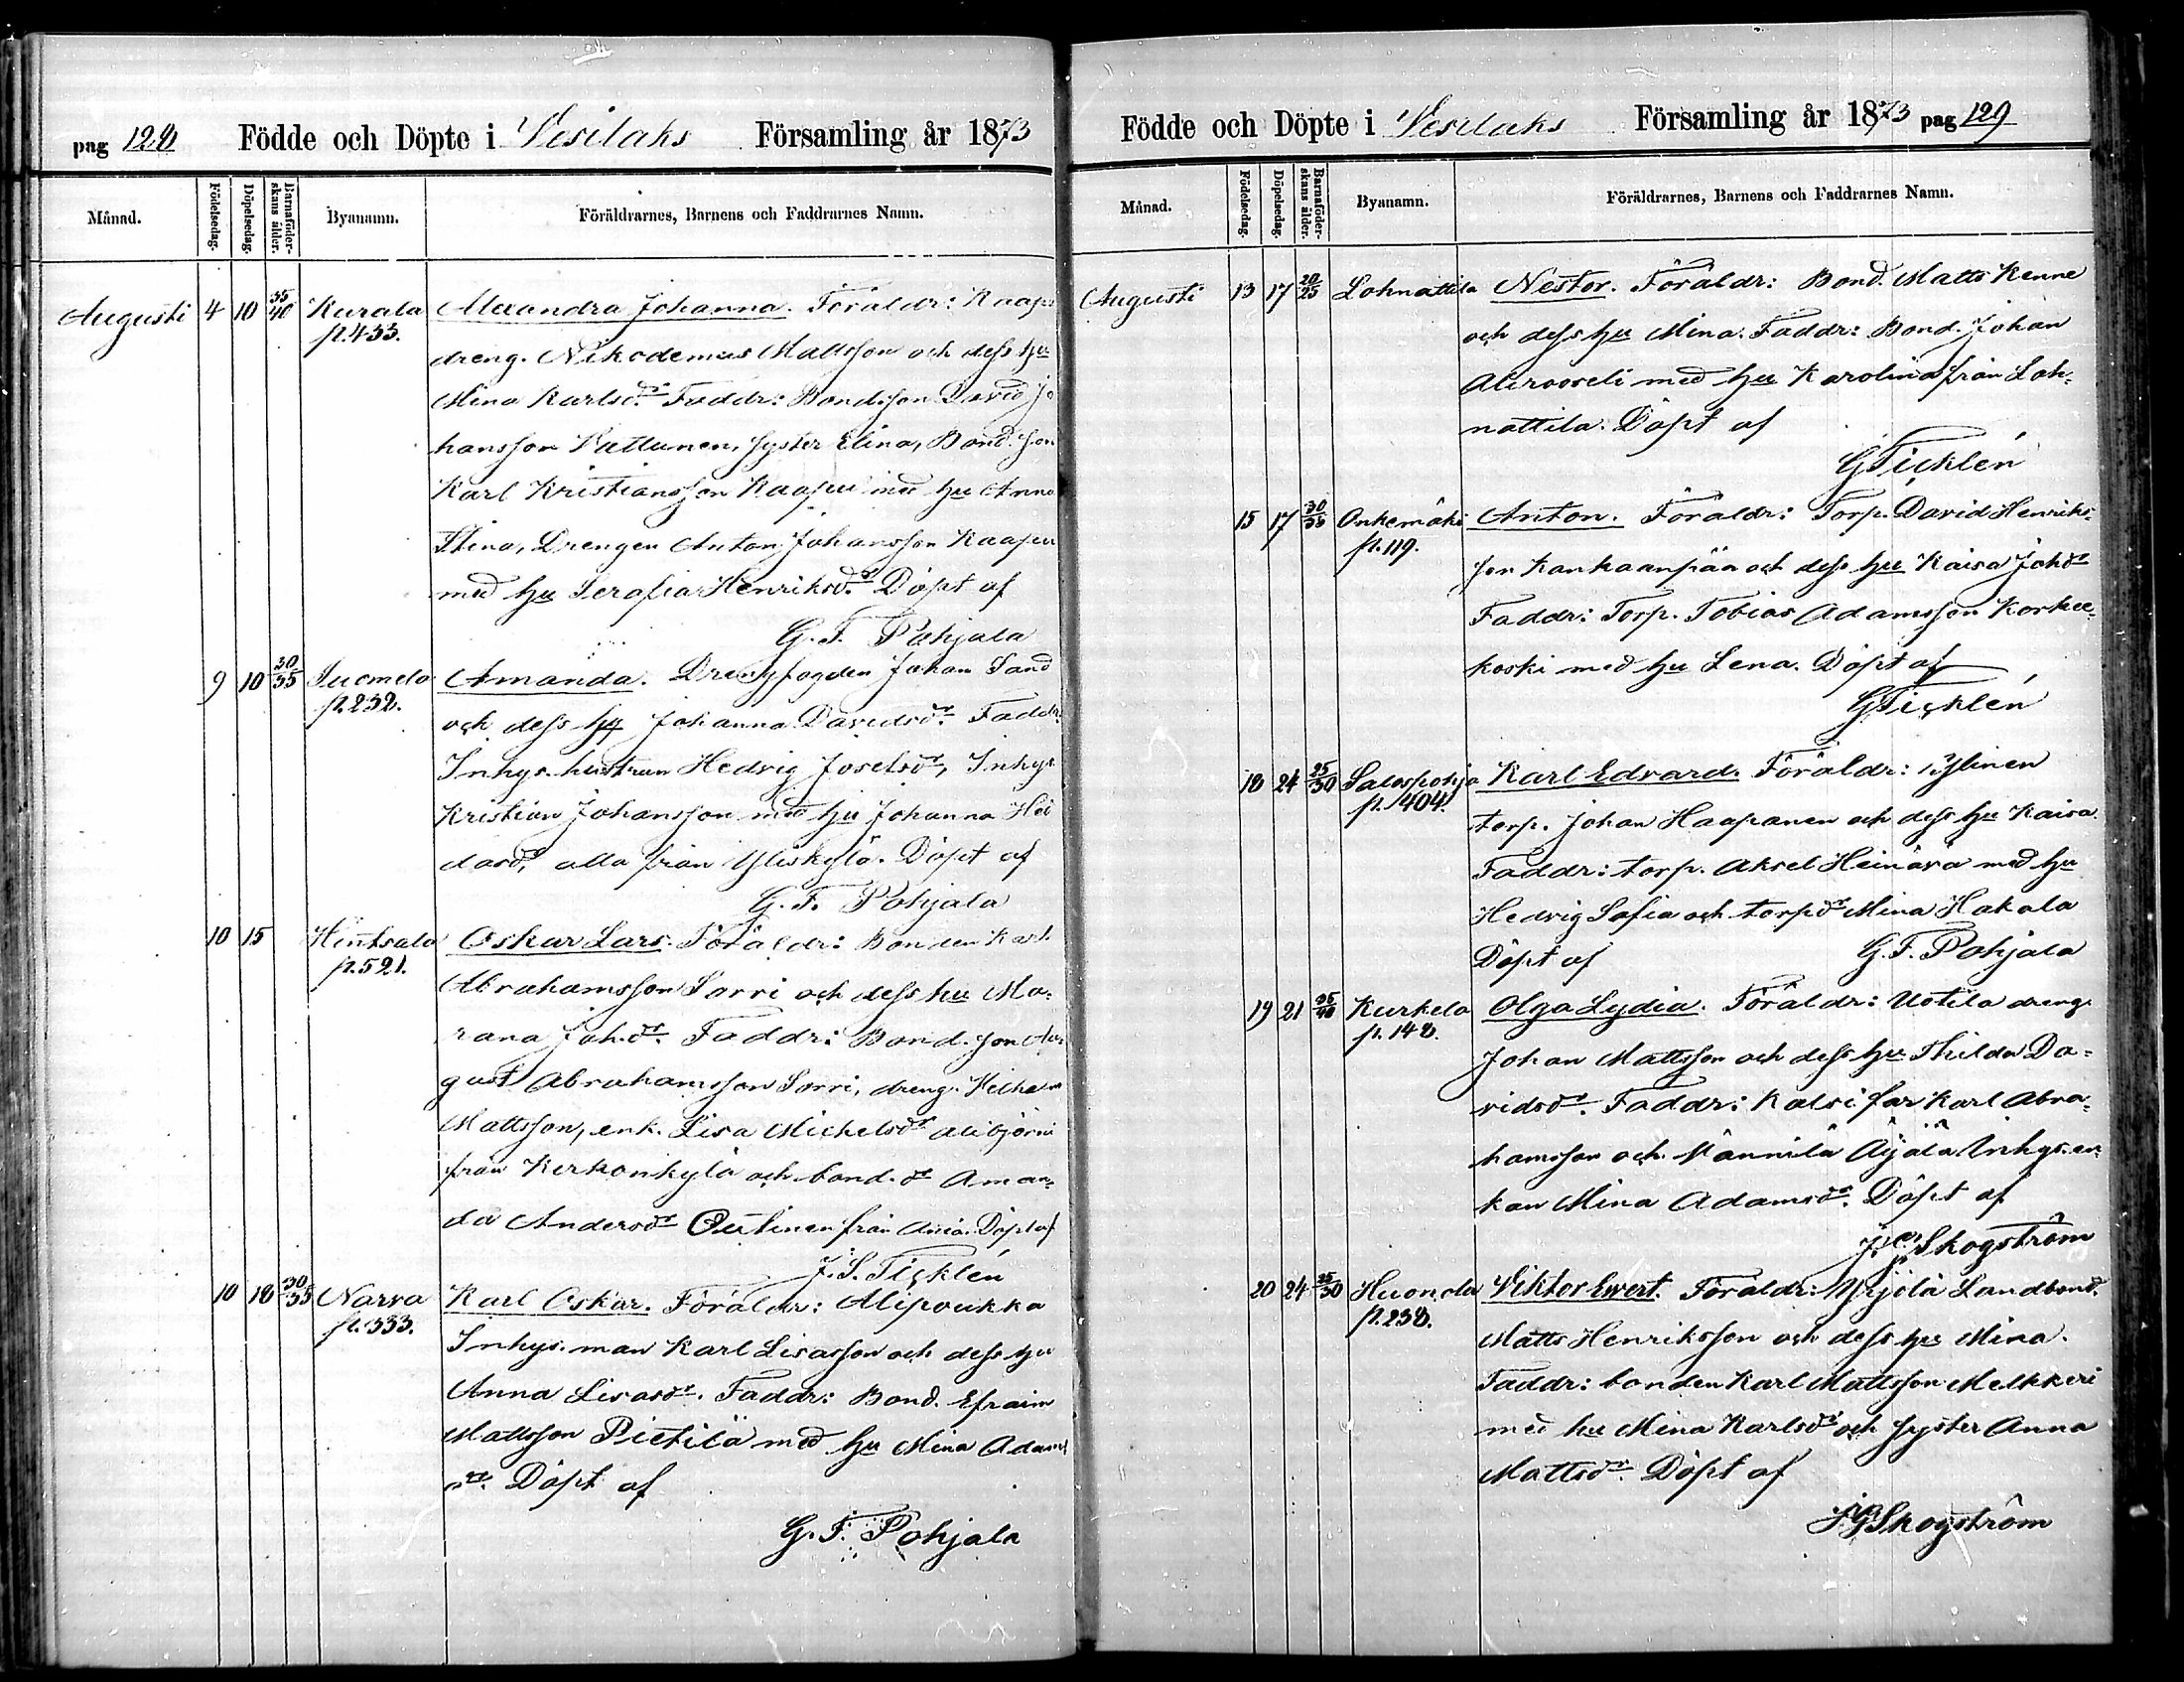 pag 128 Födde och Döpte i Vesilaks Församling år 1873
Månad. Födelsedag. Döpelsedag. Barnaföder-skans ålder. Byanamn. Föräldrarnes, Barnens och Faddrarnes Namn.
Augusti 4 10 35/40 Kurala Alexandra Johanna. Föräldr: Kaapu
p.433.
dreng. Nikodemus Mattsson och dess hu
Mina Karlsdr. Faddr: Bondeson David Jo
hansson Puttunen, syster Elina, Bond. son
Karl Kristiansson Kaapu med hu Anna
Stina, Drengen Anton Johansson Kaapu
med hu Serafia Henriksdr. Döpt af
G. F. Pohjala
9 10 30/35 Suomela Amanda. Drengfogden Johan Sand
p.232.
och dess hu Johanna Davidsdr. Faddr:
Inhys. hustrun Hedvig Josefsdr, Inhys
Kristian Johansson med hu Johanna Hei
dasdr, alla från Yliskylä. Döpt af
G. F. Pohjala
10 15 Hintsala Oskar Lars. Föräldr: Bonden Karl
p.521.
Abrahamsson Sorri och dess hu Ma-
rana Joh.dr. Faddr: Bond. son Au-
gust Abrahamsson Sorri, dreng. Vilhelm
Mattsson, enk. Lisa Michelsdr Alibjörni
från Kirkonkylä och bond. dr Aman-
da Andersdr Outinen från Ania. Döpt af
J. S. Ticklén
10 10 30/35 Narva Karl Oskar. Föräldr: Alipoukka
p.333.
Inhys. man Karl Lisasson och dess hu
Anna Lisasdr. Faddr: Bond. Efraim
Mattsson Pietilä med hu Mina Adams
dr. Döpt af
G. F. Pohjala
Födde och Döpte i Vesilaks Församling år 1873 pag 129
Månad. Födelsedag. Döpelsedag. Barnaföder-skans ålder. Byanamn. Föräldrarnes, Barnens och Faddrarnes Namn.
Augusti 13 17 20/25 Lohnattila Nestor. Föräldr: Bond. Matts Kenne
och dess hu Mina. Faddr: Bond. Johan
Alirooseli med hu Karolina från Loh-
nattila. Döpt af
G Ticklén
15 17 30/35 Onkemäki Anton. Föräldr: Torp. David Henriks-
p.119.
son Kankaanpää och dess hu Kaisa Johdr
Faddr: Torp. Tobias Adamsson Korkee-
koski med hu Lena. Döpt af
G Ticklén
18 24 25/30 Salospohja Karl Edvard. Föräldr: Ylinen
p.404.
torp. Johan Haapanen och dess hu Kaisa
Faddr: torp. Aksel Heinävä med hu
Hedvig Sofia och torpdr Mina Hakala
Döpt af G. F. Pohjala
19 21 35/40 Kurkela Olga Lydia. Föräldr: Uotila dreng.
p.148.
Johan Mattsson och dess hu Thilda Da-
vidsdr. Faddr: Kalsi far Karl Abra-
hamsson och Männilä Äijälä Inhys.en-
kan Mina Adamsdr. Döpt af
J. G. Skogström
20 24 25/30 Huonela Viktor Evert. Föräldr: Yrjölä Landbond.
p.238.
Matts Henriksson och dess hu Mina.
Faddr: bonden Karl Mattsson Melkkeri
med hu Mina Karlsdr och syster Anna
Mattsdr. Döpt af
J G Skogström